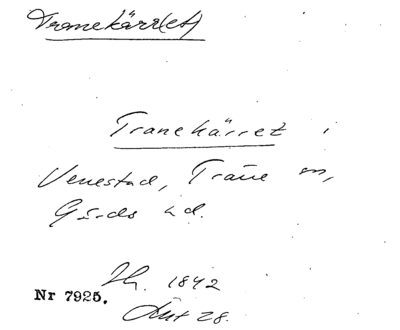 Tranekärr(et)
Tranekärret i
Venestad, Träne sn,
Gärds hd.
1842
Nr 7925.
Akt 28.